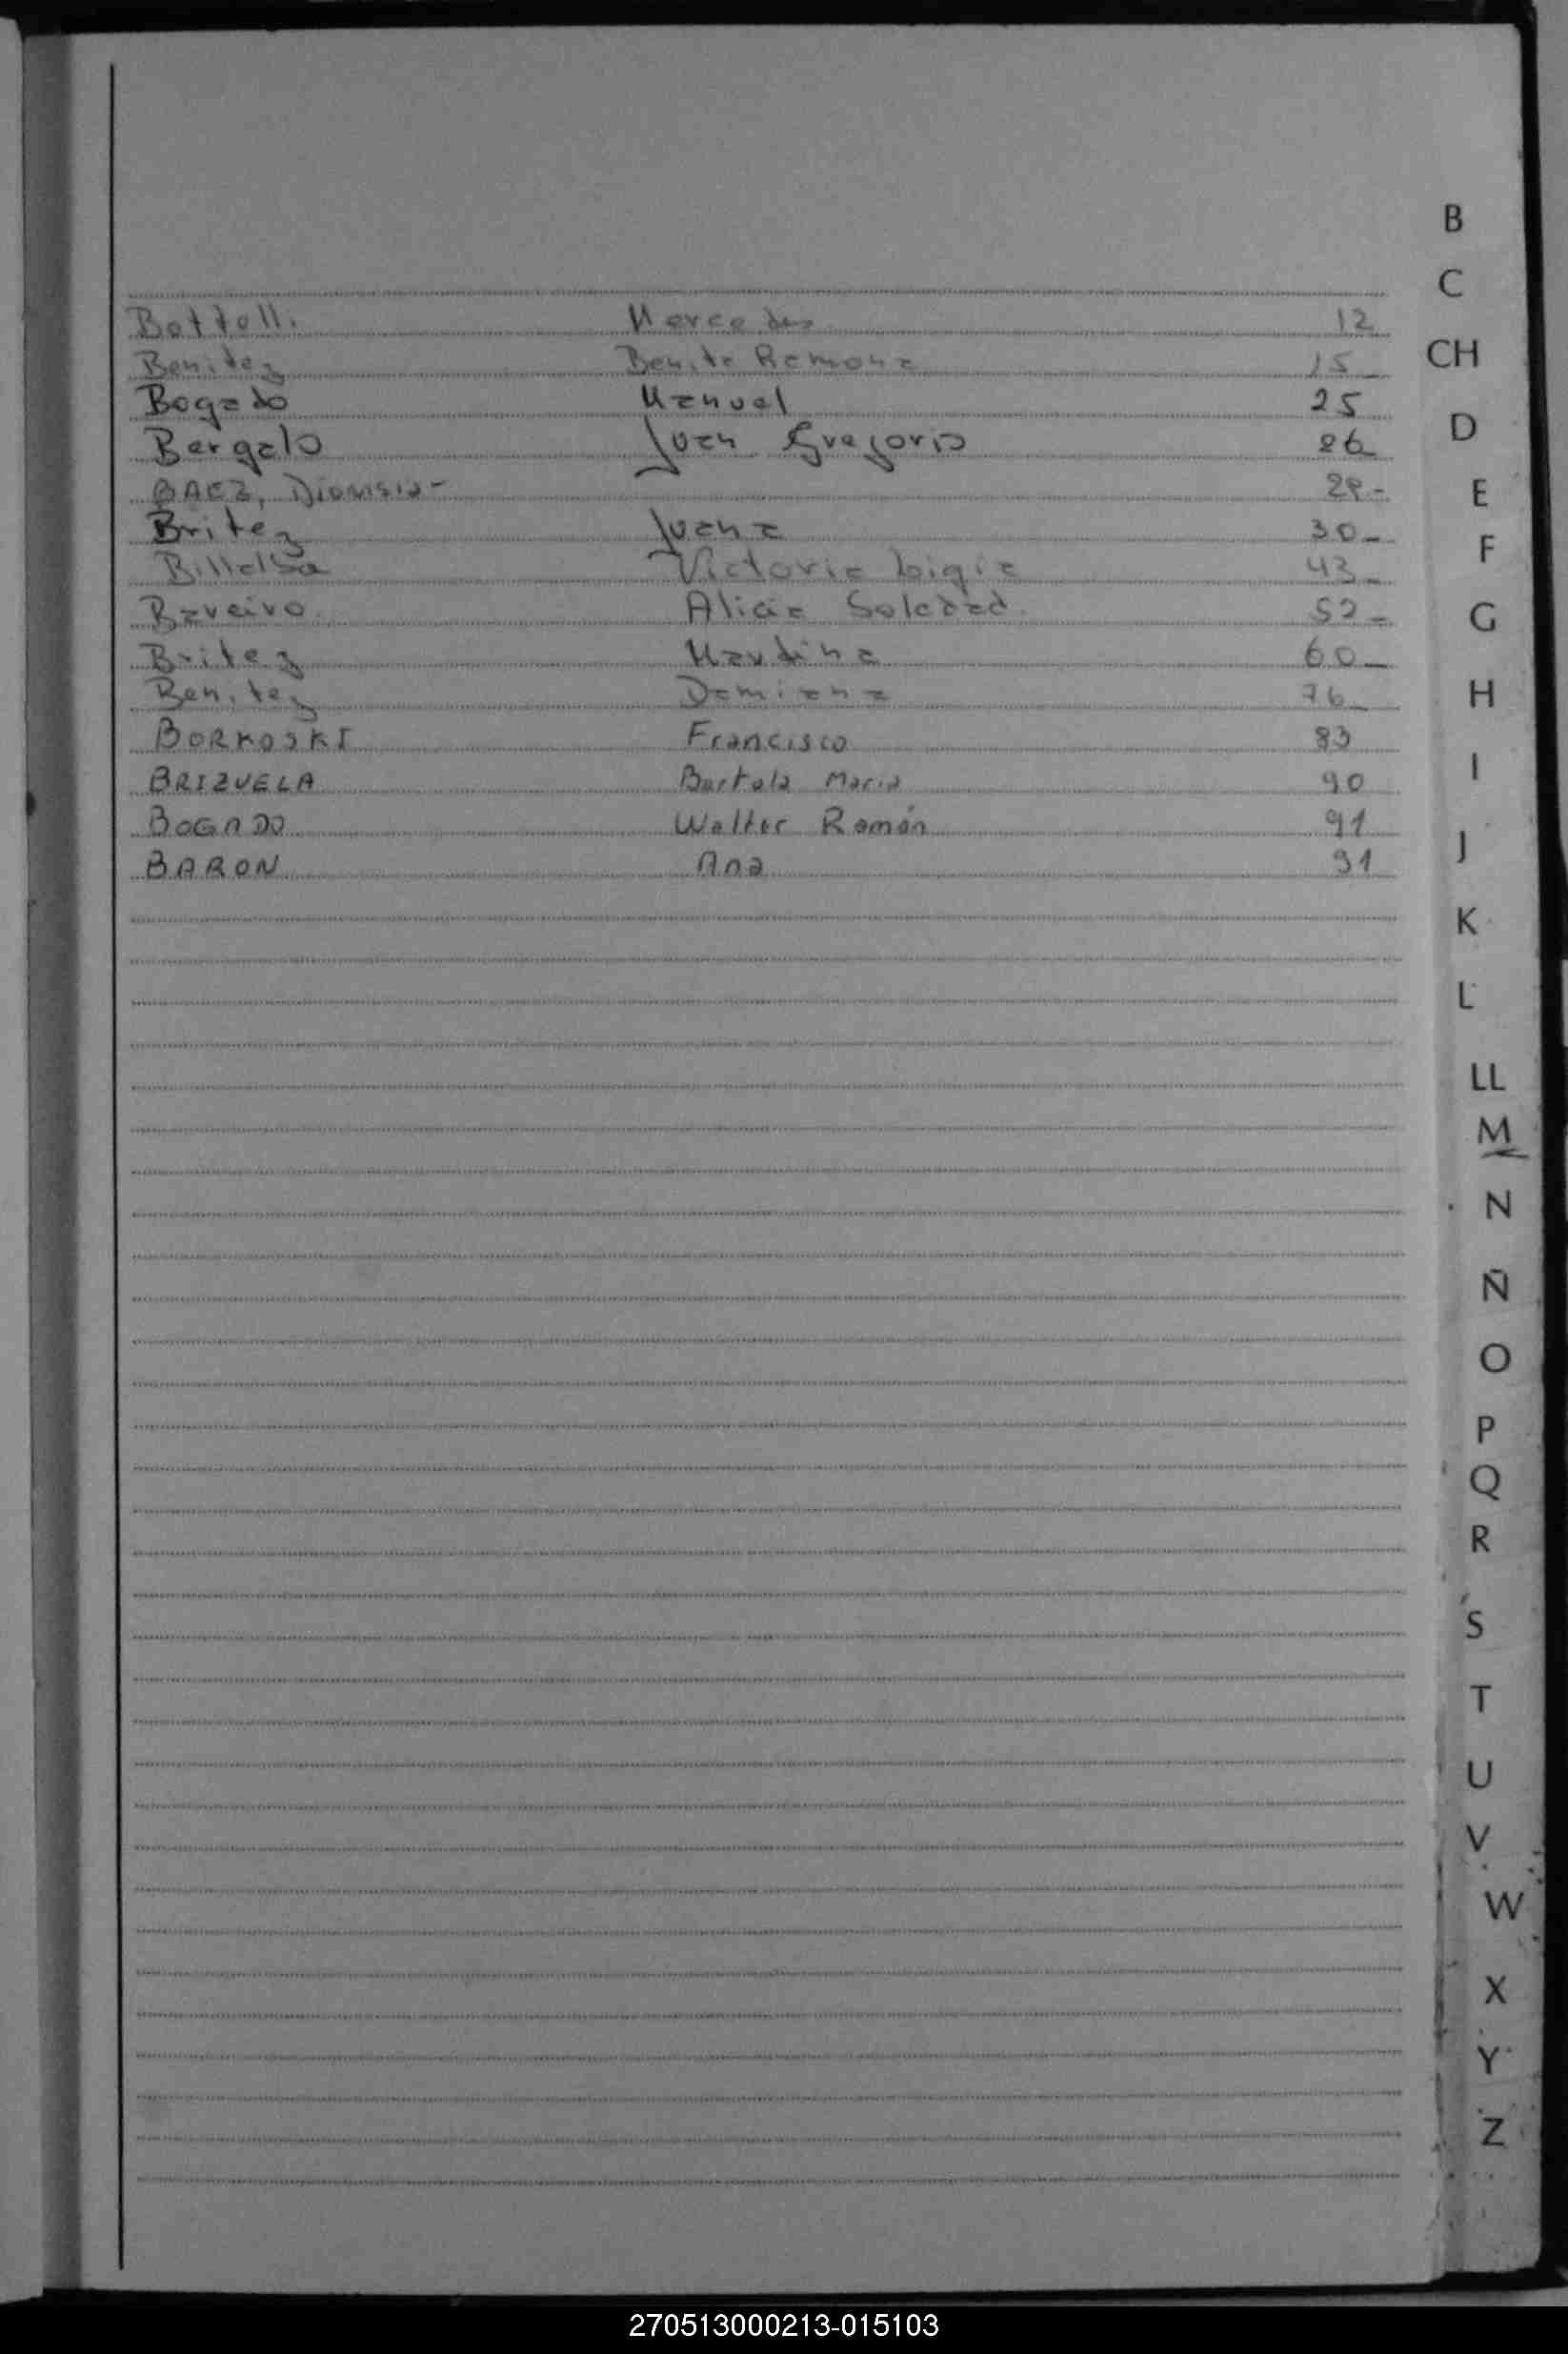 Bottolli Mercedes 12
Benitez Benita Ramona 15
Bogado Manuel 25
Bergalo Juan Gregorio 26
BAEZ, Dionisia- 29-
Britez Juana 30-
Billalba Victoria Ligia 43-
Bareiro Alicia Soledad 52-
Britez Martina 60-
Benitez Damiana 76-
BORKOSKI Francisco 83
BRIZUELA Bartola Maria 90
BOGADO Walter Ramón 91
BARON Ana 91
B
C
CH
D
E
F
G
H
I
J
K
L
LL
M
N
Ñ
O
P
Q
R
S
T
U
V
W
X
Y
Z
270513000213-015103